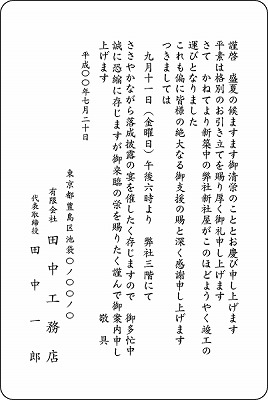 謹啓　盛夏の候ますます御清栄のこととお慶び申し上げます
平素は格別のお引き立てを賜り厚く御礼申し上げます
さて　かねてより新築中の弊社新社屋がこのほどようやく竣工の
運びとなりました
これも偏に皆様の絶大なる御支援の賜と深く感謝申し上げます
つきましては
九月十一日（金曜日）午後六時より　弊社三階にて
ささやかながら落成披露の宴を催したく存じますので　御多忙中
誠に恐縮に存じますが御来臨の栄を賜りたく謹んで御案内申し
上げます　敬具
平成〇〇年七月二十日
東京都豊島区池袋〇ノ〇〇ノ〇
有限会社　田中工務店
代表取締役　田中一郎